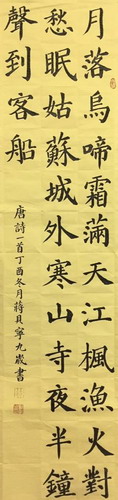 月落烏啼霜滿天江楓漁火對
愁眠姑蘇城外寒山寺夜半鐘
聲到客船
唐詩一首丁酉冬月蔣貝寧九歲書